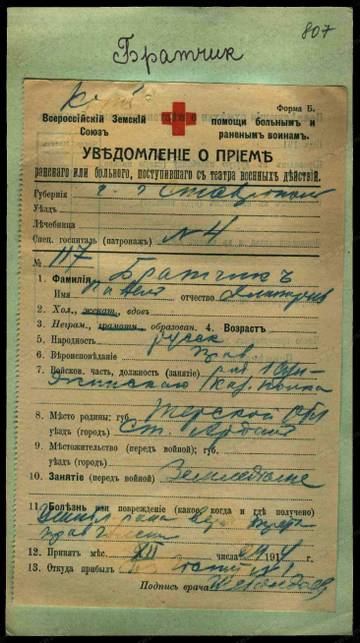 807
Братчик
Форма Б.
Всероссійскій Земскій помощи больнымъ и
Союзъ раненымъ воинамъ.
УВѢДОМЛЕНІЕ О ПРІЕМѢ
раненаго или больного, поступившаго съ театра военныхъ дѣйствій.
Губернія г. Ставрополь
Уѣздъ
Лѣчебница
Спец. госпиталь (патронажъ) № 4
№ 117
1. Фамилія Братчикъ
Имя Павелъ отчество
2. Хол., женат., вдов.
3. Неграм., грамотн., образован. 4. Возрастъ
5. Народность русск
6. Вѣроисповѣданіе прав
7. Войсков. часть, должность (занятіе) ряд 1
Каз. полка
8. Мѣсто родины; губ. Терской Обл
уѣздъ (городъ) ст. Ардонск
9. Мѣстожительство (передъ войной); губ.
уѣздъ (городъ)
10. Занятіе (передъ войной) Земледѣліе
11. Болѣзнь или поврежденіе (какое, когда и гдѣ получено)
рана
12. Принятъ мѣс. XII числа 1914 г.
13. Откуда прибылъ
Подпись врача